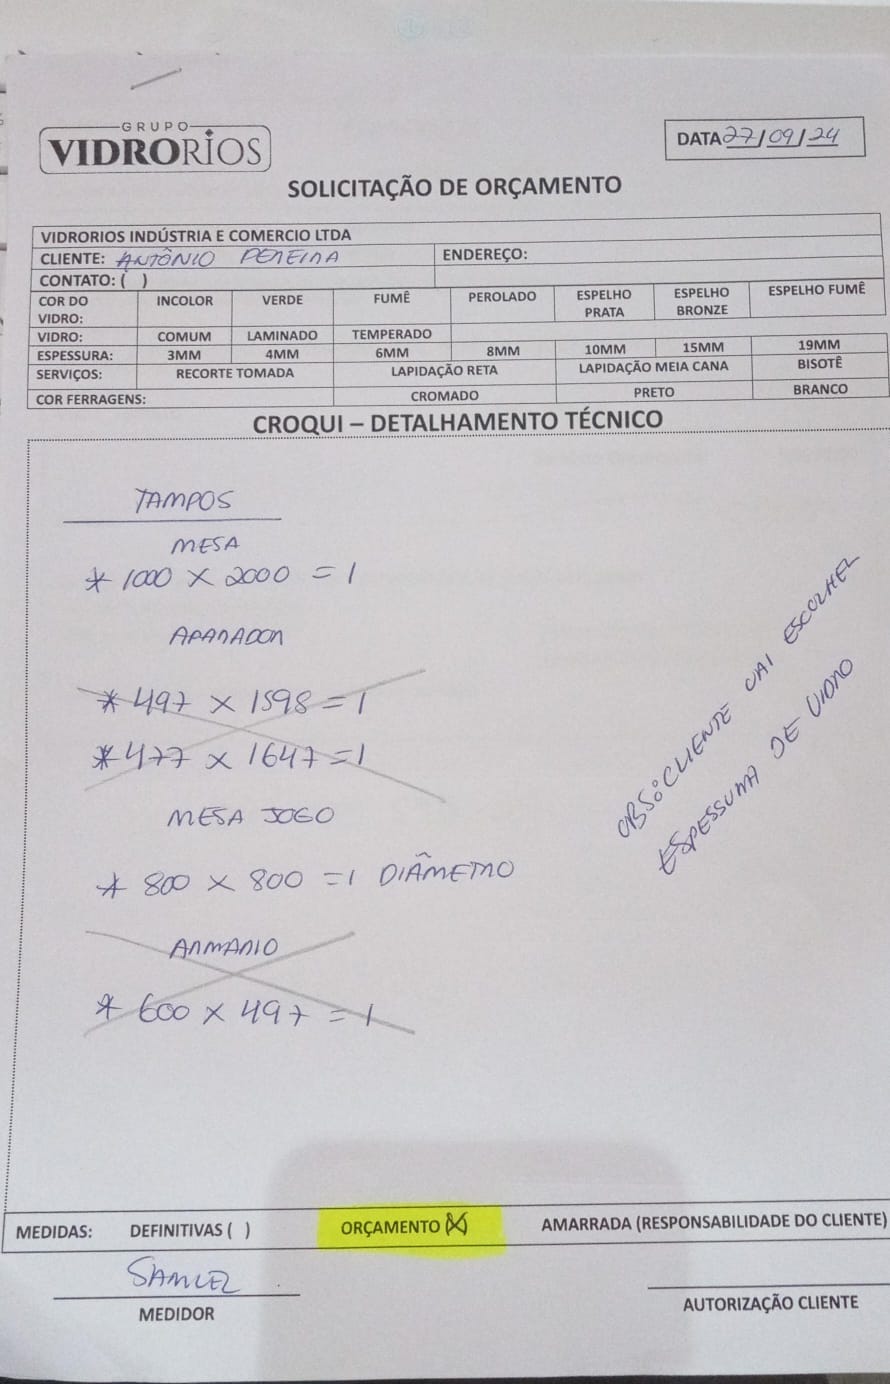 GRUPO
VIDRORIOS
DATA 27/09/24
SOLICITAÇÃO DE ORÇAMENTO
VIDRORIOS INDÚSTRIA E COMERCIO LTDA
CLIENTE: ANTÔNIO PEREIRA ENDEREÇO:
CONTATO: ( )
COR DO VIDRO: INCOLOR VERDE FUMÊ PEROLADO ESPELHO PRATA ESPELHO BRONZE ESPELHO FUMÊ
VIDRO: COMUM LAMINADO TEMPERADO
ESPESSURA: 3MM 4MM 6MM 8MM 10MM 15MM 19MM
SERVIÇOS: RECORTE TOMADA LAPIDAÇÃO RETA LAPIDAÇÃO MEIA CANA BISOTÊ
COR FERRAGENS: CROMADO PRETO BRANCO
CROQUI – DETALHAMENTO TÉCNICO
TAMPOS
MESA
* 1000 X 2000 = 1
APARADOR
* 497 X 1598 = 1
* 477 X 1647 = 1
MESA JOGO
* 800 X 800 = 1 DIÂMETRO
ARMARIO
* 600 X 497 = 1
OBS: CLIENTE VAI ESCOLHER
ESPESSURA DE VIDRO
MEDIDAS: DEFINITIVAS ( ) ORÇAMENTO (X) AMARRADA (RESPONSABILIDADE DO CLIENTE)
SAMUEL
MEDIDOR AUTORIZAÇÃO CLIENTE